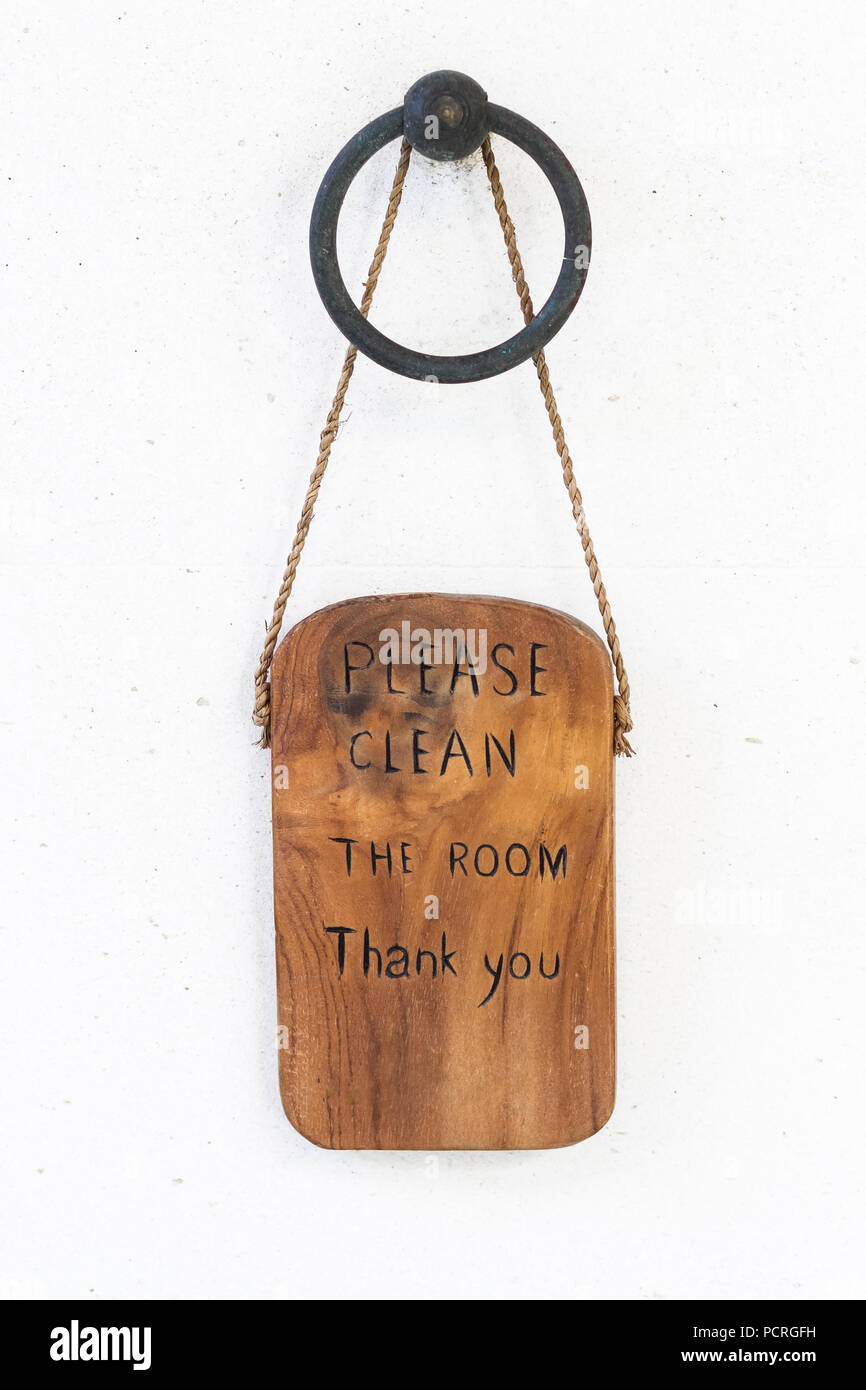 PLEASE
CLEAN
THE ROOM
Thank you
a
a
a
a
a
a
a
a
a
alamy
Image ID: PCRGFH
www.alamy.com